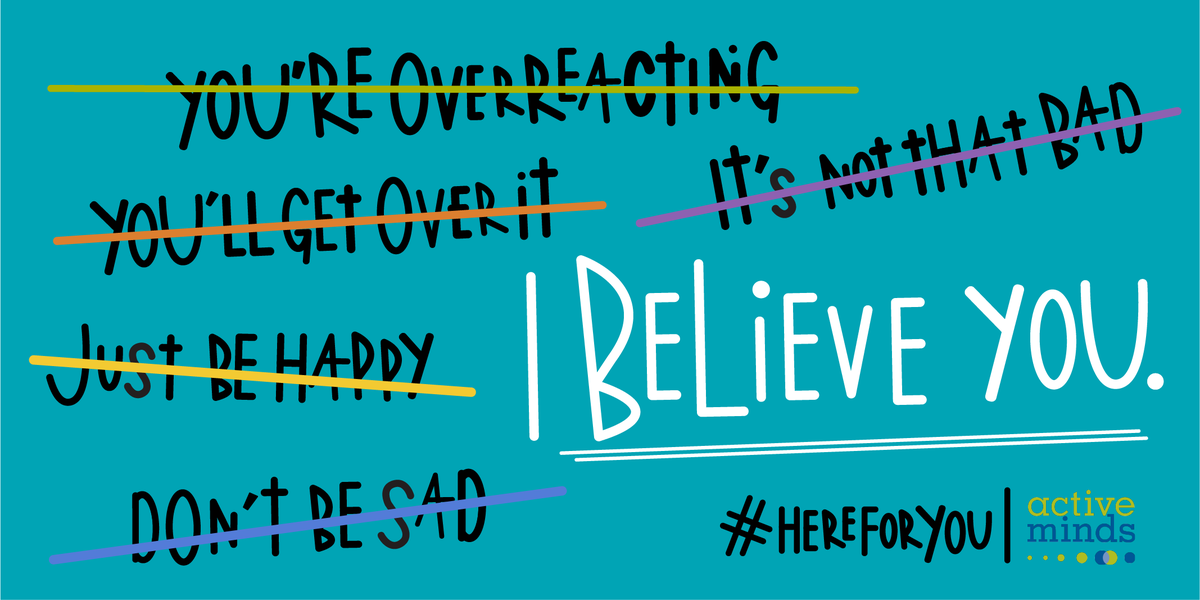 YOU'RE OVERREACTING
IT'S NOT THAT BAD
YOU'LL GET OVER IT
I BELIEVE YOU.
JUST BE HAPPY
DON'T BE SAD
#HEREFORYOU
active
minds